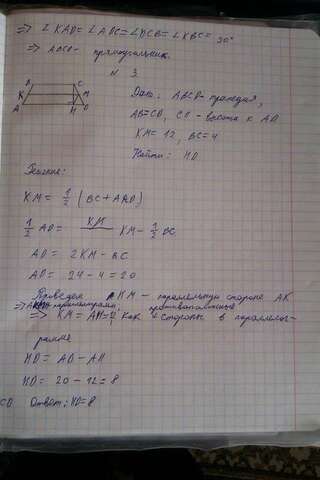 => ∠KAD = ∠ADC = ∠DCB = ∠KBC = 90°
=> ABCD - прямоугольник.
N 3.
B C
K M
A H D
Дано: ABCD - трапеция,
AB=CD, CH - высота к AD
KM = 12, BC = 4
Найти: HD
Решение:
KM = 1/2 (BC + AD)
1/2 AD = KM - 1/2 BC
AD = 2KM - BC
AD = 24 - 4 = 20
Проведем HM - параллельна стороне AK
=> AKMH - параллелограмм противоположные
=> KM = AH = 12 как стороны в параллелог-
рамме
HD = AD - AH
HD = 20 - 12 = 8
Ответ: HD = 8